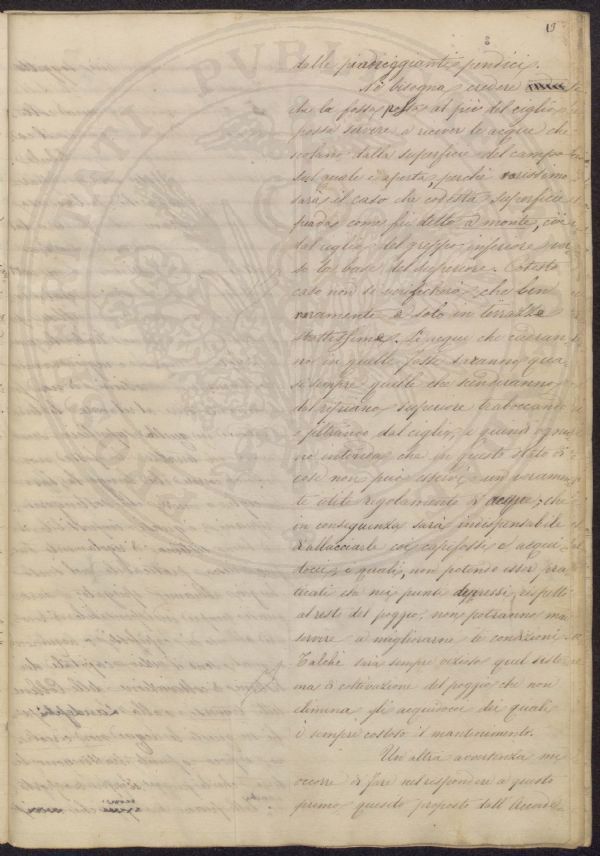 19
dalle pianeggianti pendici.
Nè bisogna credere
che la fossa posta al piè del ciglio
possa servire a ricever le acque che
scolano dalla superficie del campo
sul quale è aperta, perchè rarissimo
sarà il caso che codesta superficie
penda, come fu detto a monte, cioè
dal ciglio del greppo inferiore ver
so la base del superiore. Cotesto
caso non si verificherà che ben
raramente e solo in terrazze
strettissime. Le acque che cadran
no in quelle fosse saranno qua
si sempre quelle che scenderanno
dal ripiano superiore traboccando
o filtrando dal ciglio, e quindi ognu
no intende che in questo stato di
cose non può esservi un veramen
te utile regolamento di acque; che
in conseguenza sarà indispensabile
d'allacciarle coi capifossi e acqui
docci, i quali, non potendo esser pra
ticati che nei punti depressi, rispetto
al resto del poggio, non potranno mai
servire a migliorarne le condizioni.
Talchè sarà sempre vizioso quel siste
ma di coltivazione del poggio che non
elimina gli acquidocci dei quali
è sempre costoso il mantenimento.
Un'altra avvertenza mi
occorre di fare nel rispondere a questo
primo quesito proposto dall'Accade